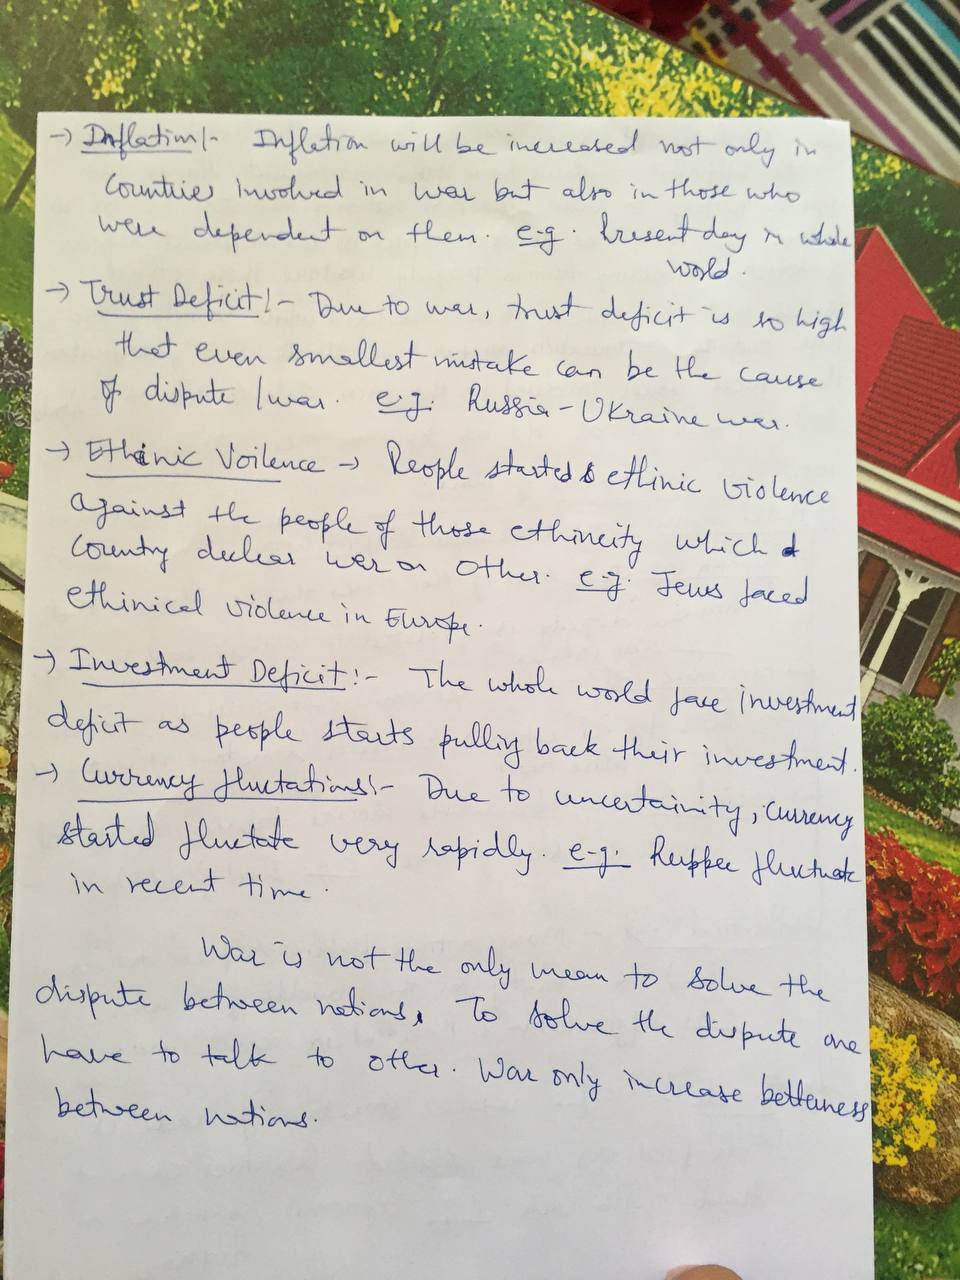 → Inflation!- Inflation will be increased not only in
Countries Involved in war but also in those who
were dependent on them. e.g. Present day in whole
world.
→ Trust Deficit!- Due to war, trust deficit is so high
that even smallest mistake can be the cause
of dispute /war. e.g. Russia-Ukraine war.
→ Ethinic Voilence → People started ethinic violence
against the people of those ethincity which
Country declear war on other. e.g. Jews faced
ethinical violence in Europe.
→ Investment Deficit!- The whole world face investment
deficit as people starts pulling back their investment.
→ Currency fluctations!- Due to uncertainity, currency
started fluctate very rapidly. e.g. Ruppee fluctuate
in recent time.
War is not the only mean to solve the
dispute between nations, To solve the dispute one
have to talk to other. War only increase betterness
between nations.